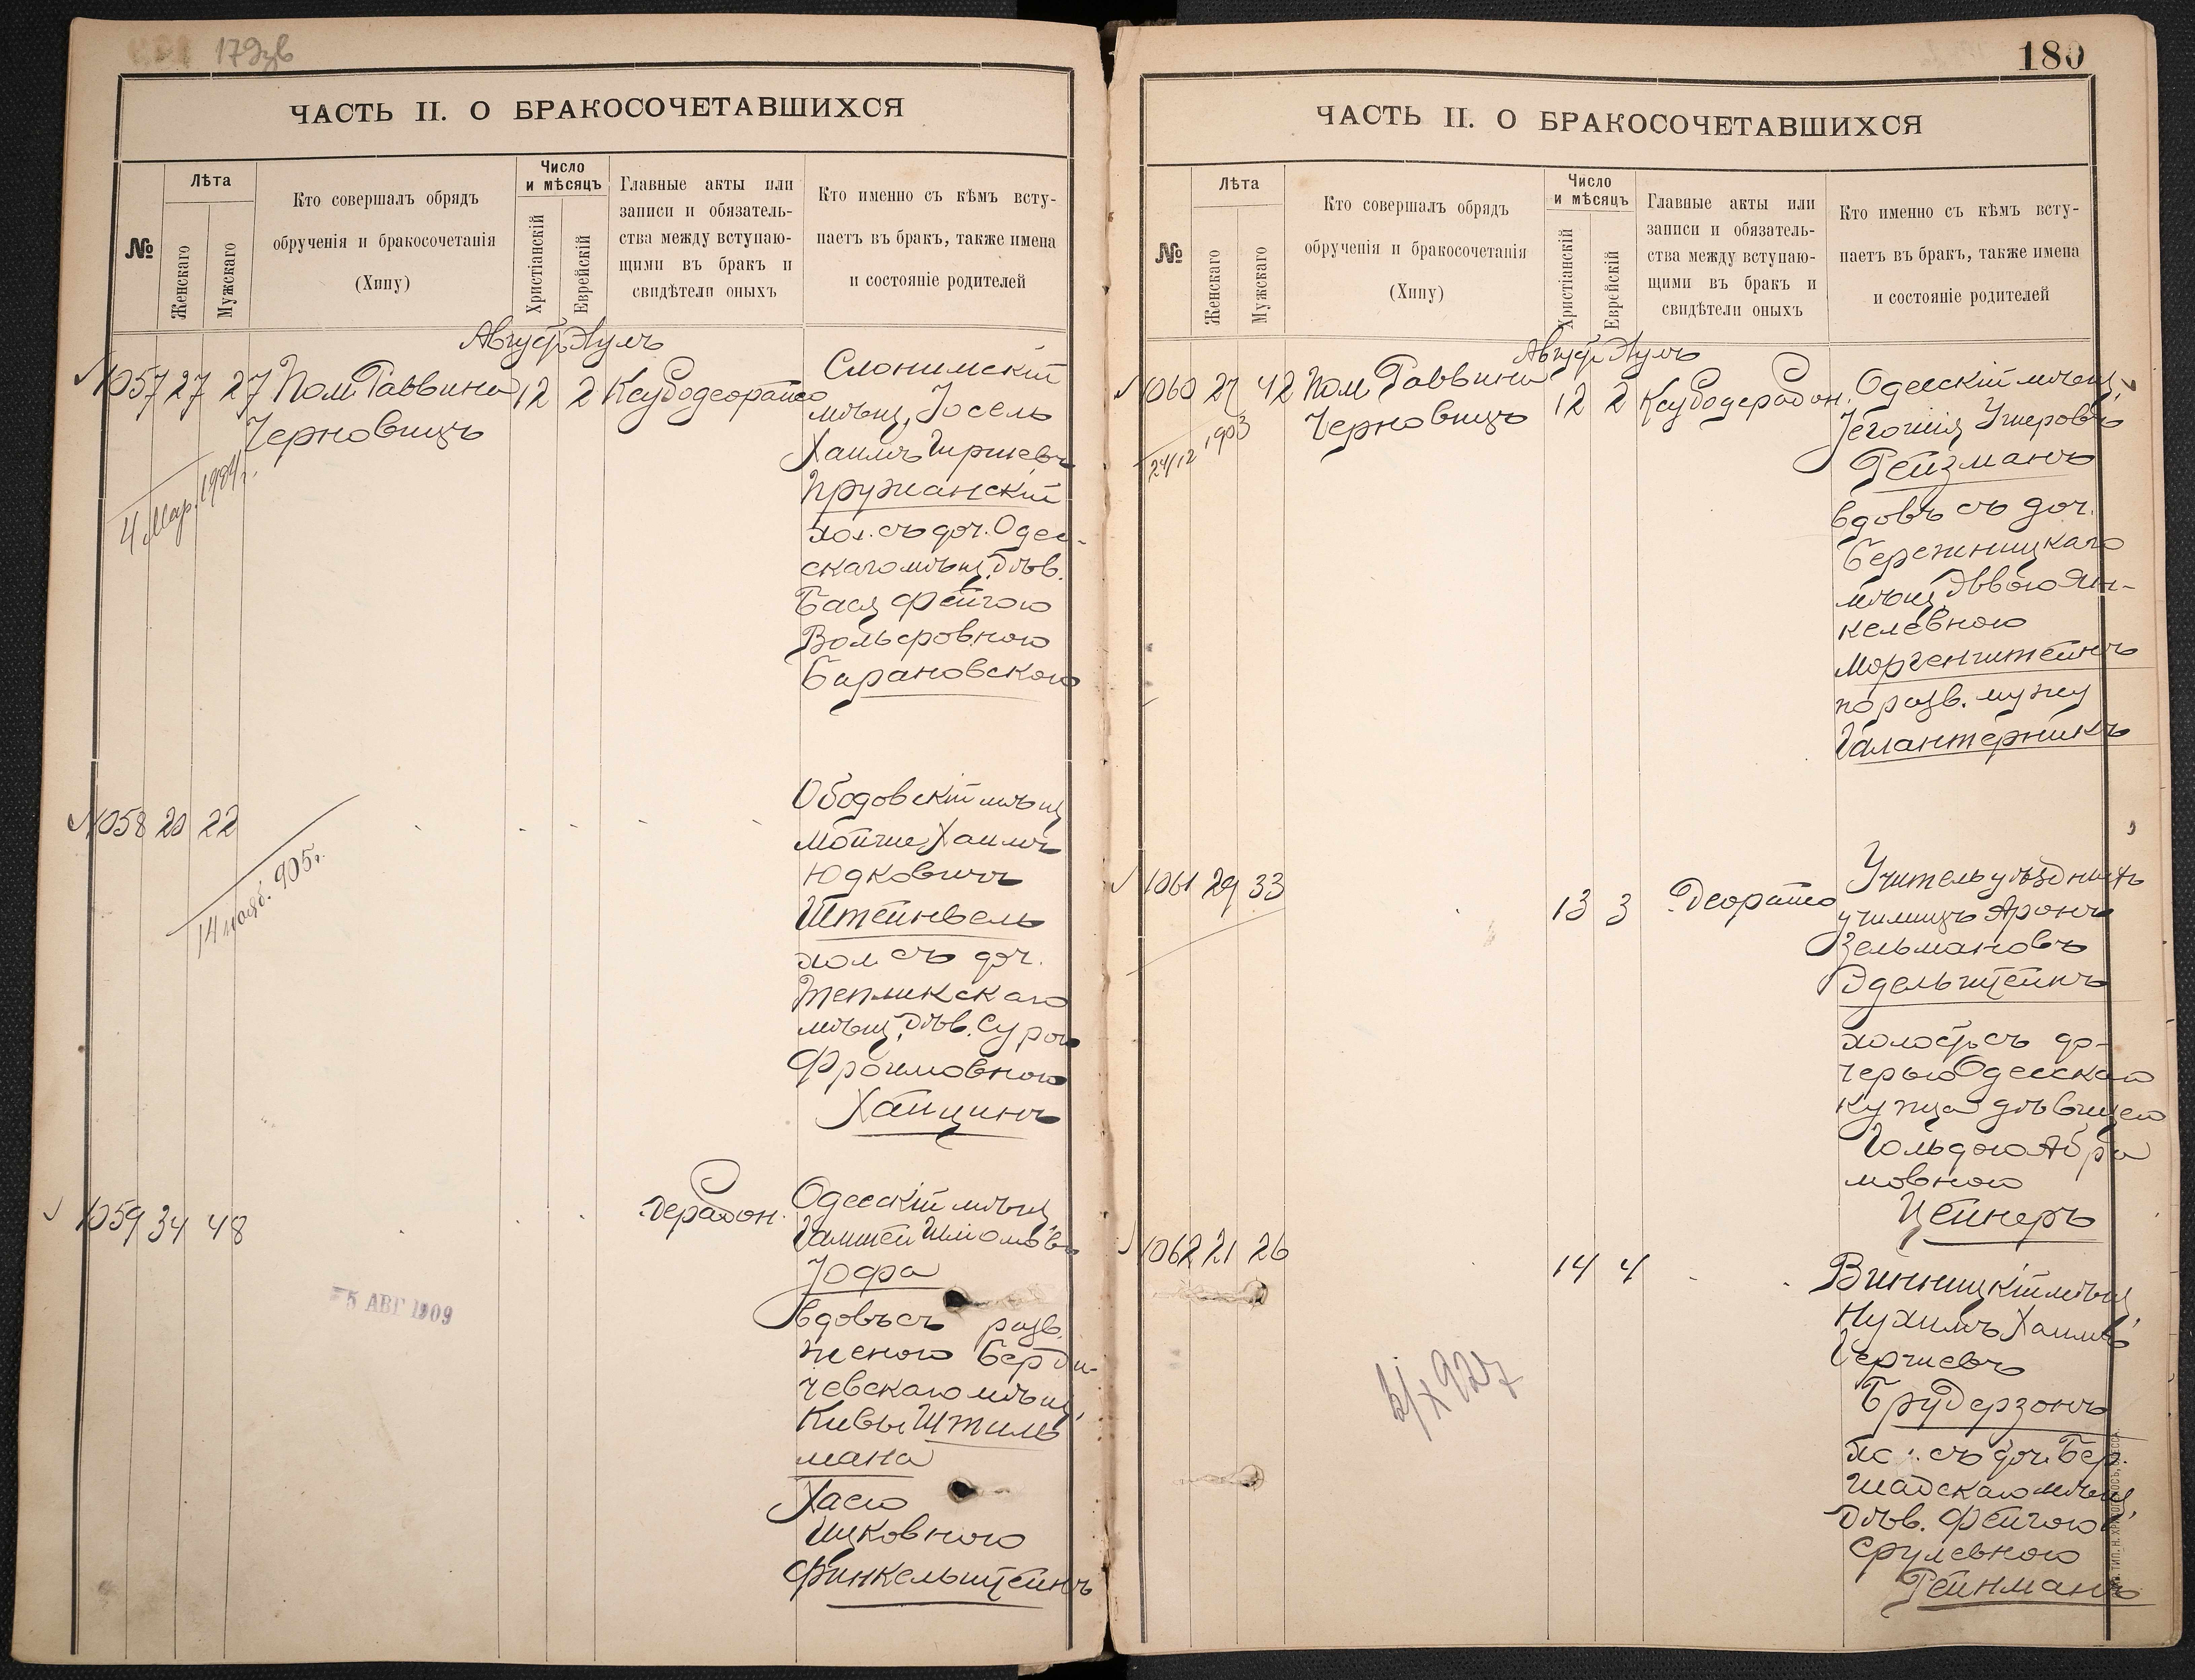 179зв
ЧАСТЬ II. О БРАКОСОЧЕТАВШИХСЯ
№
Лѣта
Женскаго
Мужскаго
Кто совершалъ обрядъ
обрученія и бракосочетанія
(Хипу)
Число
и мѣсяцъ
Христіанскій
Еврейскій
Главные акты или
записи и обязатель-
ства между вступаю-
щими въ бракъ и
свидѣтели оныхъ
Кто именно съ кѣмъ всту-
паетъ въ бракъ, также имена
и состояніе родителей
Август Элулъ
1057 27 27 Пом. Раввина 12 2
Черновицъ
4 Мар.
Слонимскій
мѣщ. Іосель
Хаимъ Гиршевъ
Пружанскій
хол. съ доч. Одес-
скаго мѣщ. Дѣв.
Бася Фейгою
Вольфовною
Барановскою
1058 20 22
14 нояб. 905 г.
Ободовскій мѣщ
Мойше Хаимъ
Юдковичъ
Штейнвель
хол съ доч.
Тепликскаго
мѣщ. Дѣв. Сурою
Фроимовною
Хайцинъ
1059 34 48
5 АВГ 1909
Одесскій мѣщ
Іофа
вдовъ съ разв.
женою Берди-
чевскаго мѣщ.
Кивы Штиль
мана
Хасею
Ицковною
Финкельштейнъ
180
ЧАСТЬ II. О БРАКОСОЧЕТАВШИХСЯ
№
Лѣта
Женскаго
Мужскаго
Кто совершалъ обрядъ
обрученія и бракосочетанія
(Хипу)
Число
и мѣсяцъ
Христіанскій
Еврейскій
Главные акты или
записи и обязатель-
ства между вступаю-
щими въ бракъ и
свидѣтели оныхъ
Кто именно съ кѣмъ всту-
паетъ въ бракъ, также имена
и состояніе родителей
Август Элулъ
1060 27 42 Пом Раввина 12 2
Черновицъ
24/12 903
Одесскій мѣщ.
Іегошія Ушеровъ
Рейзманъ
вдовъ съ доч.
Бережницкаго
мѣщ. Эввою Ян-
келевною
Моргенштейнъ
по разв. мужу
Галантерникъ
1061 29 33 13 3
Учитель уѣздныхъ
училищъ Аронъ
Зельмановъ
Эдельштейнъ
холост съ до-
черью Одесскаго
купца дѣвицею
Гольдою Абра
мовною
Цейнеръ
1062 21 26 14 4
Винницкій мѣщ.
Нухимъ Хаимъ
Гершевъ
Брудерзонъ
хо. съ доч. Бер.
шадскаго мѣщ.
Дѣв. Фейгою
Срулевною
Рейнманъ